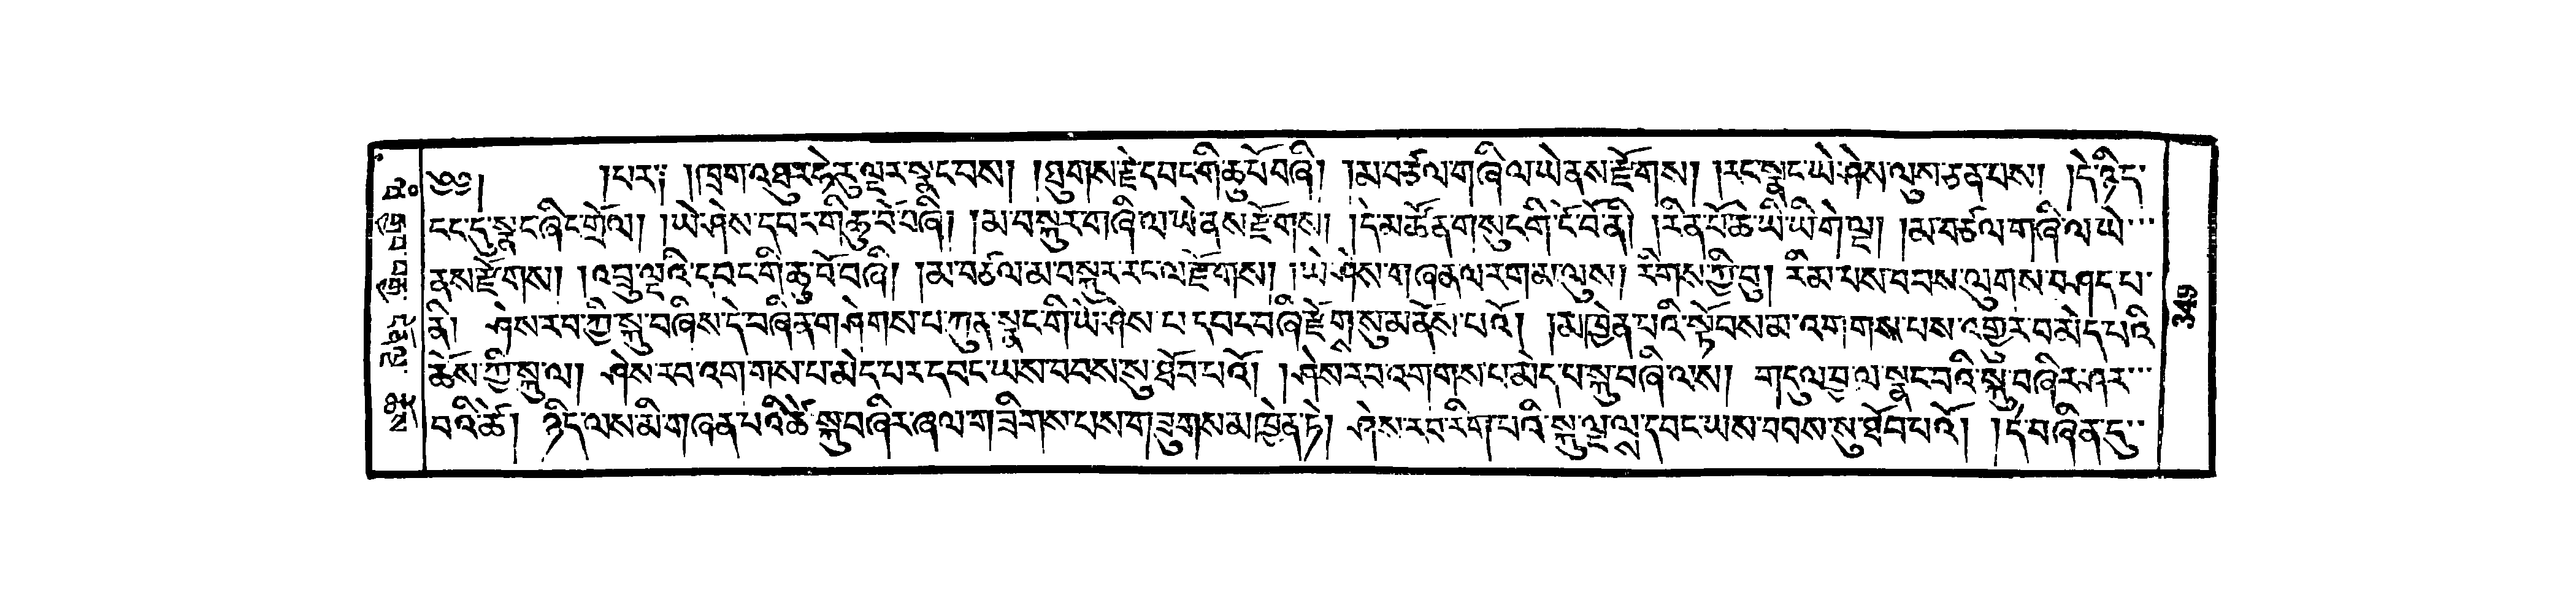 ༄༅། །པར༔ །ཁྲག་འཐུང་ཧེ་རུ་ལྔར་སྣང་བས། །ཐུགས་རྗེ་དབང་གི་ཆུ་བོ་བཞི། །མ་བཙལ་གཞི་ལ་ཡེ་ནས་རྫོགས། །རང་སྣང་ཡེ་ཤེས་ལུས་ཅན་པས། །དེ་ཉིད་
ངང་དུ་སྣང་ཞིང་གྲོལ། །ཡེ་ཤེས་དབང་གི་ཆུ་བོ་བཞི། །མ་བསྐུར་གཞི་ལ་ཡེ་ནས་རྫོགས། །དེ་མཚོན་གསུང་གི་ངོ་བོ་ནི། །རིན་པོ་ཆེ་ཡི་ཡི་གེ་ལྔ། །མ་བཙལ་གཞི་ལ་ཡེ་
ནས་རྫོགས། །འབྲུ་ལྔའི་དབང་གི་ཆུ་བོ་བཞི། །མ་བཙལ་མ་བསྐུར་རང་ལ་རྫོགས། །ཡེ་ཤེས་གཞན་ལ་རག་མ་ལུས། རིགས་ཀྱི་བུ། རིམ་པས་བབས་ལུགས་བཤད་པ་
ནི། ཤེས་རབ་ཀྱི་སྐུ་བཞིས་དེ་བཞིན་གཤེགས་པ་ཀུན་སྣང་གི་ཡེ་ཤེས་པ་དབང་བཞི་རྗེ་གྲྭ་སུ་མནོས་པའོ། །མཁྱེན་པའི་སྟོབས་མ་འགགས་པས་འགྱུར་བ་མེད་པའི་
ཆོས་ཀྱི་སྐུ་ལ། ཤེས་རབ་འགགས་པ་མེད་པར་དབང་ཡས་བབས་སུ་ཐོབ་པའོ། །ཤེས་རབ་འགགས་པ་མེད་པ་སྐུ་བཞི་ལས། གདུལ་བྱ་ལ་སྣང་བའི་སྐུ་བཞིར་ཤར་
བའི་ཚེ། ཉིད་ལས་མི་གཞན་པའི་ཚེ་སྐུ་བཞིར་ཞལ་གཟིགས་པས་གཟུགས་མཁྱེན་ཏེ། ཤེས་རབ་རིག་པའི་སྐུ་ལྔ་ལྔ་དབང་ཡས་བབས་སུ་ཐོབ་པའོ། །དེ་བཞིན་དུ་